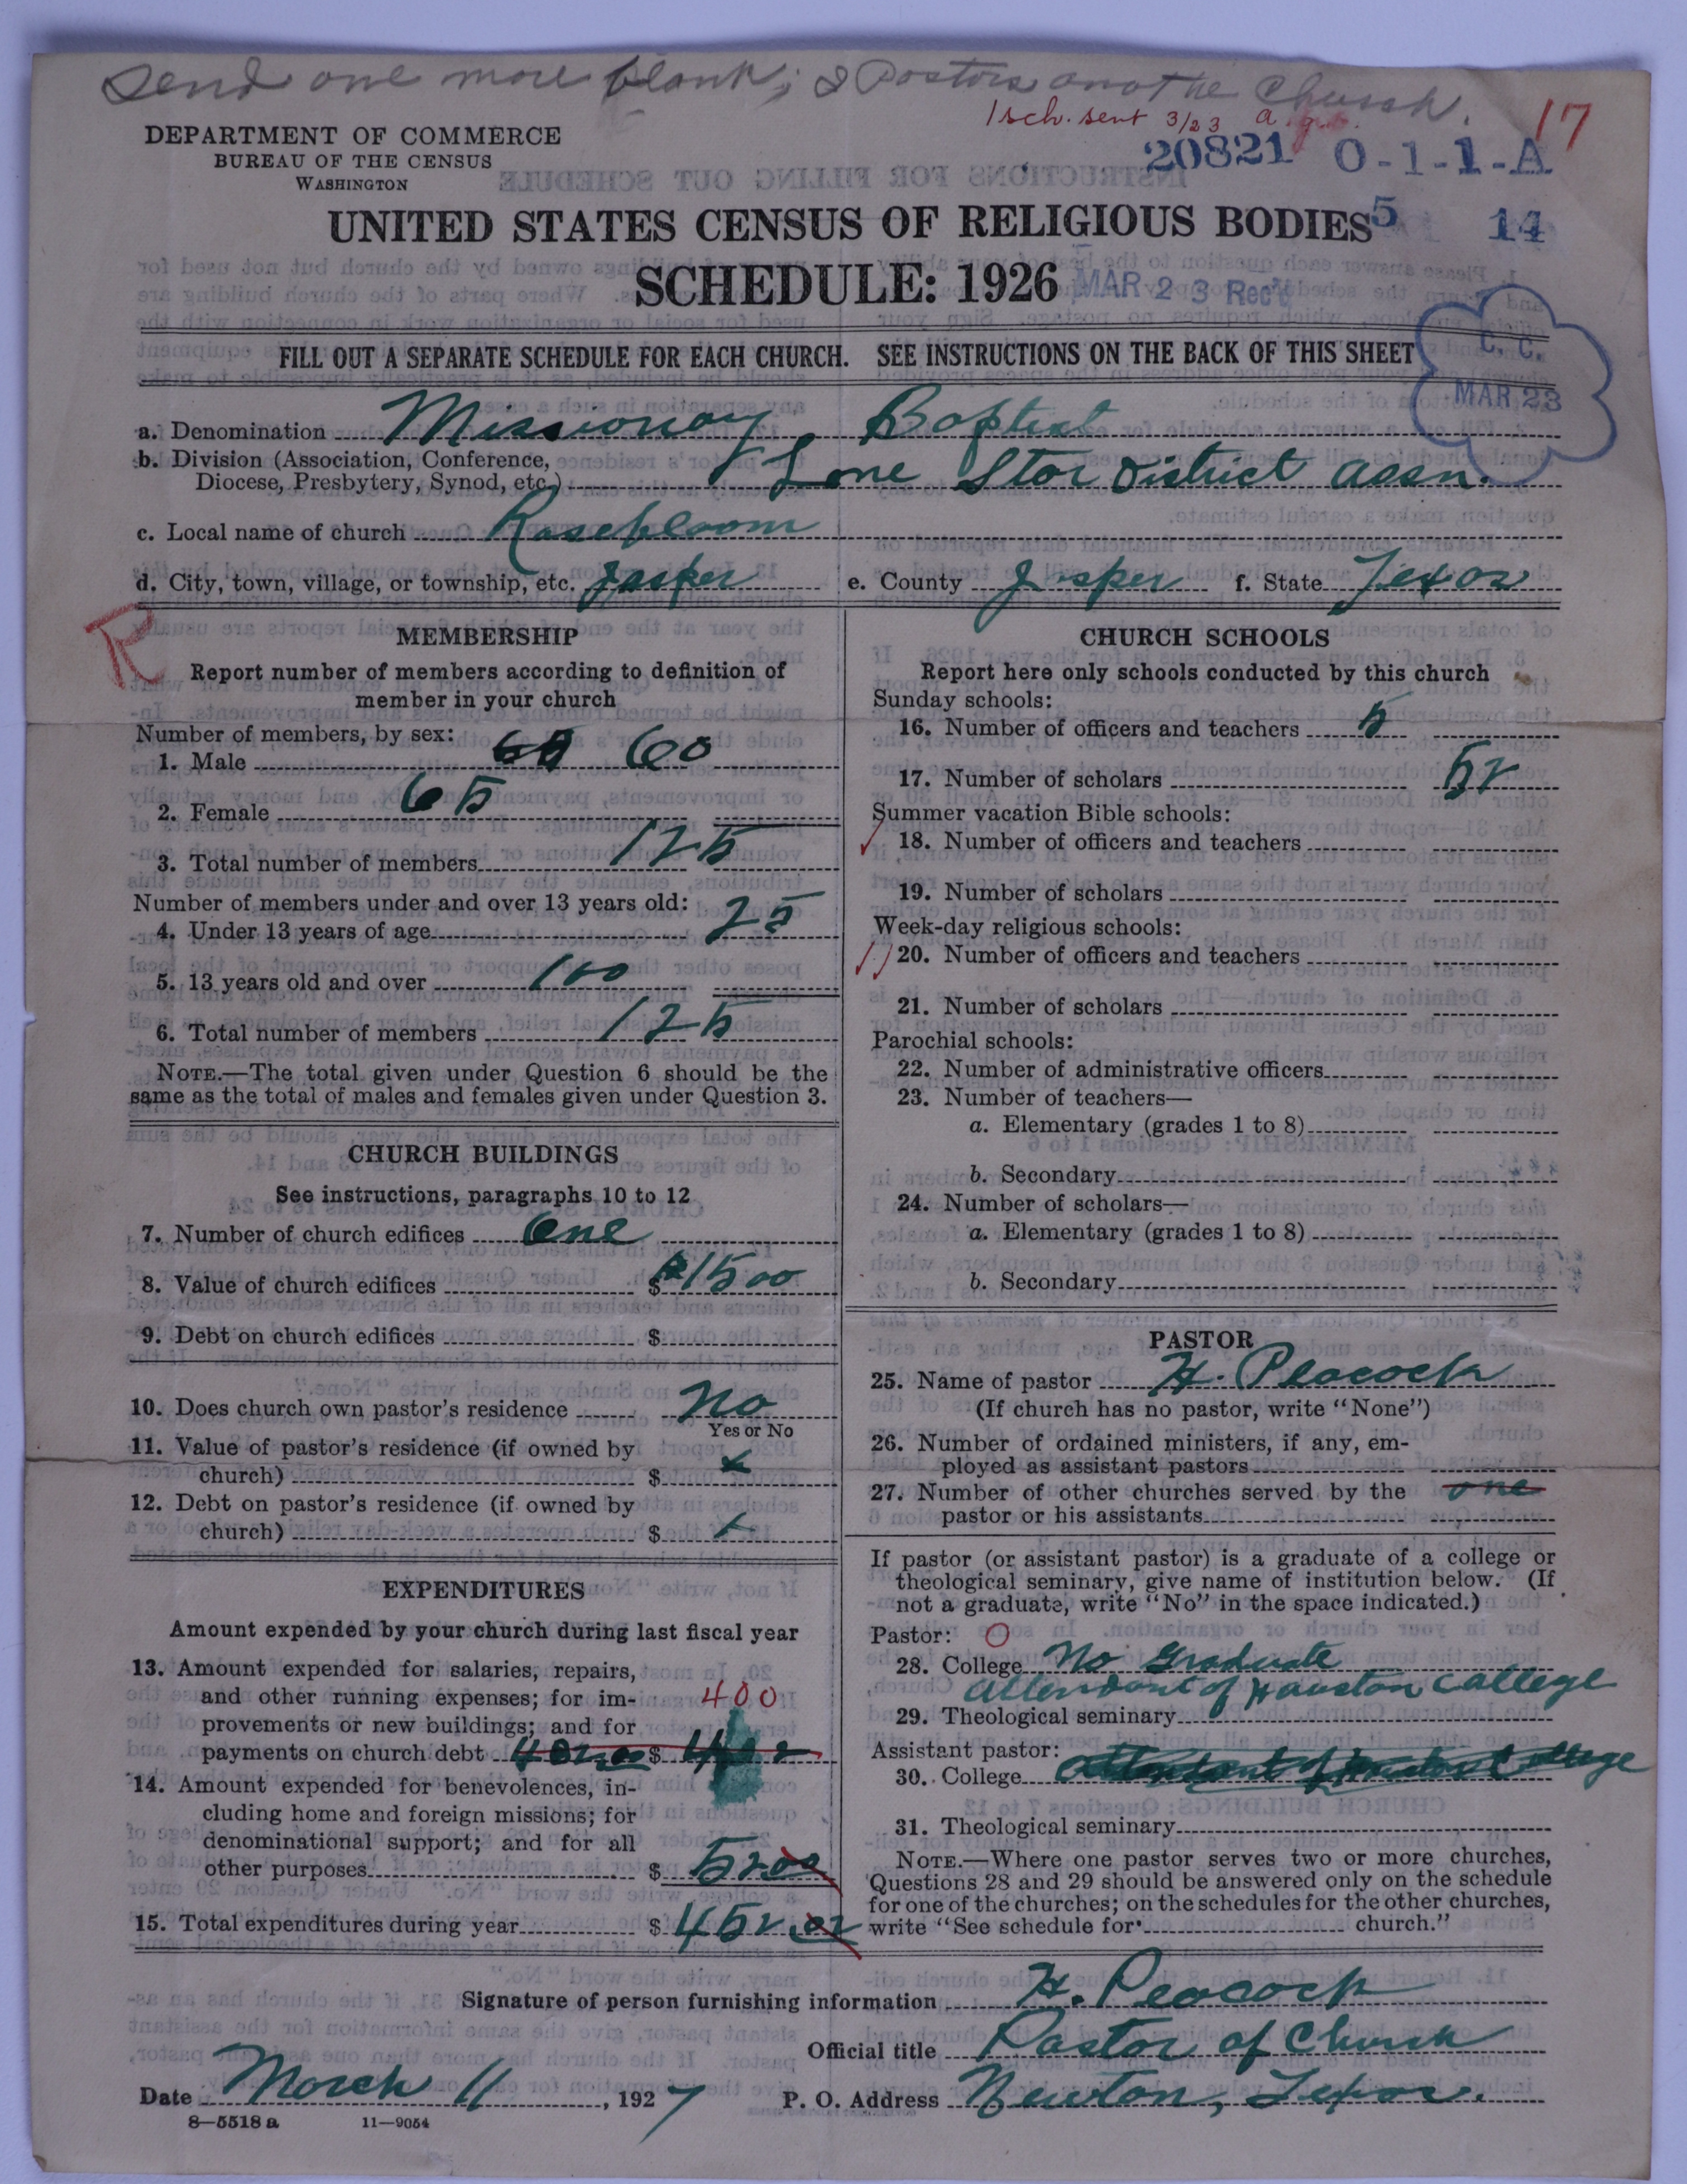 Send one more blank; I Pastors another Church.
1 sch. sent 3/23 a.g.
17
DEPARTMENT OF COMMERCE
BUREAU OF THE CENSUS
WASHINGTON
20821 0-1-1-A
UNITED STATES CENSUS OF RELIGIOUS BODIES
5 14
SCHEDULE: 1926
MAR 23 Rec'd
FILL OUT A SEPARATE SCHEDULE FOR EACH CHURCH. SEE INSTRUCTIONS ON THE BACK OF THIS SHEET
C. C.
MAR 23
a. Denomination Missionary Baptist
b. Division (Association, Conference,
Diocese, Presbytery, Synod, etc.) Lone Star District assn.
c. Local name of church Rosebloom
d. City, town, village, or township, etc. Jasper e. County Jasper f. State Texas
R
MEMBERSHIP
Report number of members according to definition of
member in your church
Number of members, by sex:
1. Male 60
2. Female 65
3. Total number of members 125
Number of members under and over 13 years old:
4. Under 13 years of age 25
5. 13 years old and over 100
6. Total number of members 125
NOTE.—The total given under Question 6 should be the
same as the total of males and females given under Question 3.
CHURCH BUILDINGS
See instructions, paragraphs 10 to 12
7. Number of church edifices one
8. Value of church edifices $ 1500
9. Debt on church edifices $
10. Does church own pastor's residence No
Yes or No
11. Value of pastor's residence (if owned by
church) $ x
12. Debt on pastor's residence (if owned by
church) $ x
EXPENDITURES
Amount expended by your church during last fiscal year
13. Amount expended for salaries, repairs,
and other running expenses; for im-
provements or new buildings; and for
payments on church debt $
400
14. Amount expended for benevolences, in-
cluding home and foreign missions; for
denominational support; and for all
other purposes $ 5200
15. Total expenditures during year $ 452.02
CHURCH SCHOOLS
Report here only schools conducted by this church
Sunday schools:
16. Number of officers and teachers 5
17. Number of scholars 52
Summer vacation Bible schools:
18. Number of officers and teachers
19. Number of scholars
Week-day religious schools:
20. Number of officers and teachers
21. Number of scholars
Parochial schools:
22. Number of administrative officers
23. Number of teachers—
a. Elementary (grades 1 to 8)
b. Secondary
24. Number of scholars—
a. Elementary (grades 1 to 8)
b. Secondary
PASTOR
25. Name of pastor H. Peacock
(If church has no pastor, write "None")
26. Number of ordained ministers, if any, em-
ployed as assistant pastors
27. Number of other churches served by the one
pastor or his assistants
If pastor (or assistant pastor) is a graduate of a college or
theological seminary, give name of institution below. (If
not a graduate, write "No" in the space indicated.)
Pastor: O
28. College No Graduate
attendant of Houston College
29. Theological seminary
Assistant pastor:
30. College attendant of Houston College
31. Theological seminary
NOTE.—Where one pastor serves two or more churches,
Questions 28 and 29 should be answered only on the schedule
for one of the churches; on the schedules for the other churches,
write "See schedule for church."
Signature of person furnishing information H. Peacock
Official title Pastor of Church
Date March 11, 1927 P. O. Address Newton, Texas.
8—5518 a 11—9054